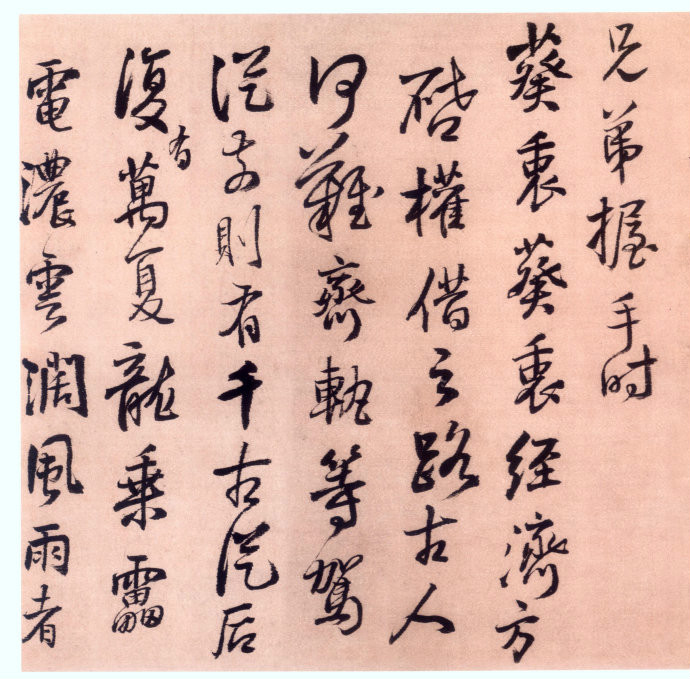 兄弟握手时
葵衷葵衷经濟方
啓權借之路古人
何難齊軌等駕
從前則有千古從后
復有萬夏龍乗靁
電濃雲潤風雨者